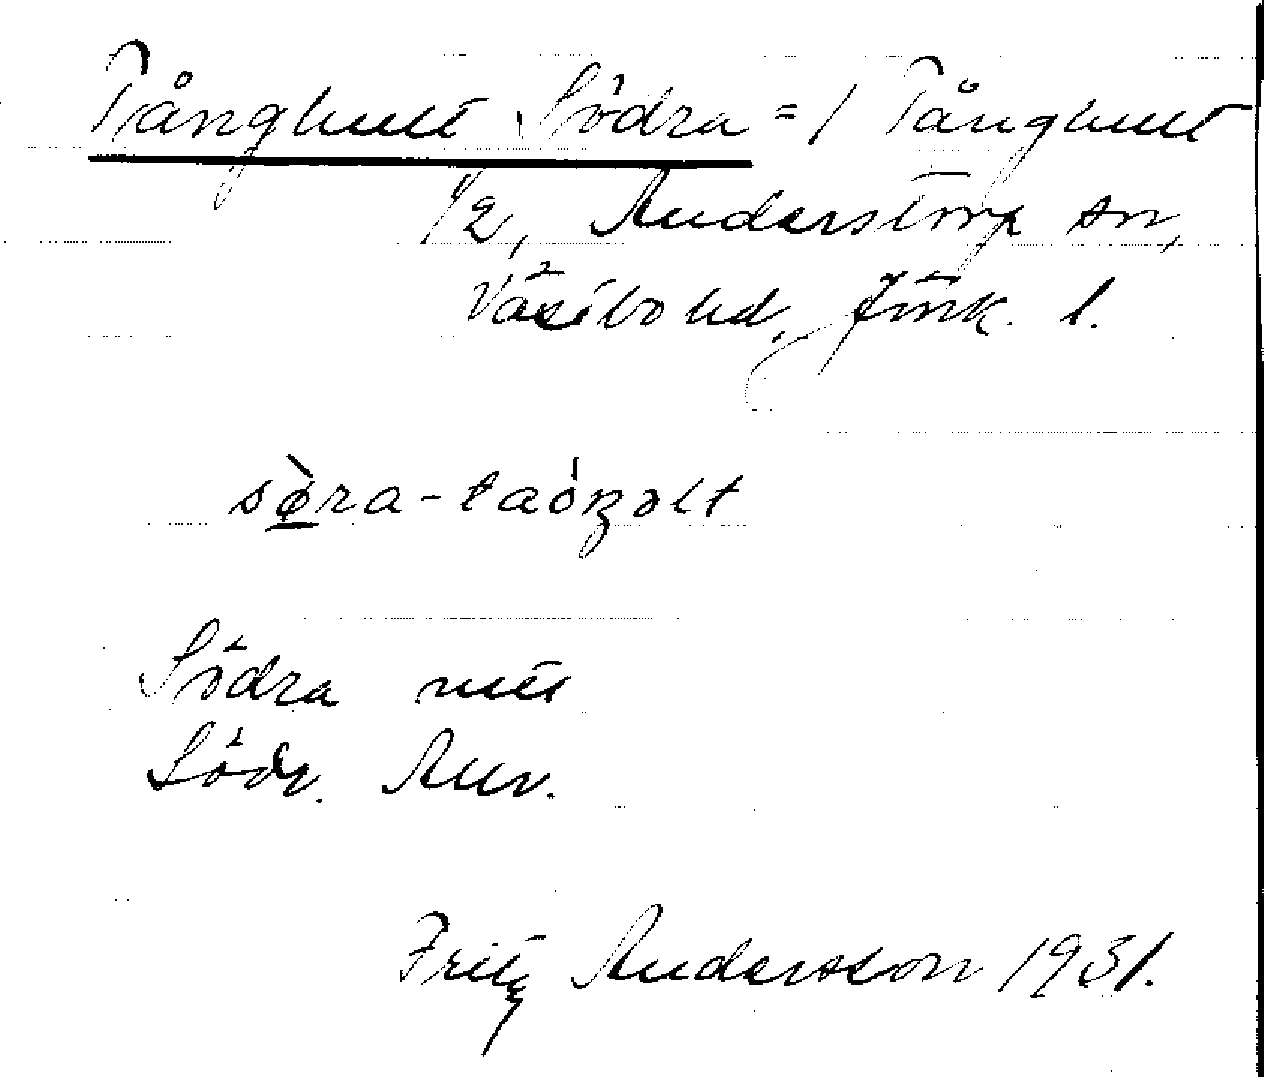 Tånghult Södra = 1 Tånghult
1/2, Anderstorp sn,
Västbo hd, Jönk. l.
sø̀ra-taóŋəlt
Södra
Södr.
Fritz Andersson 1931.